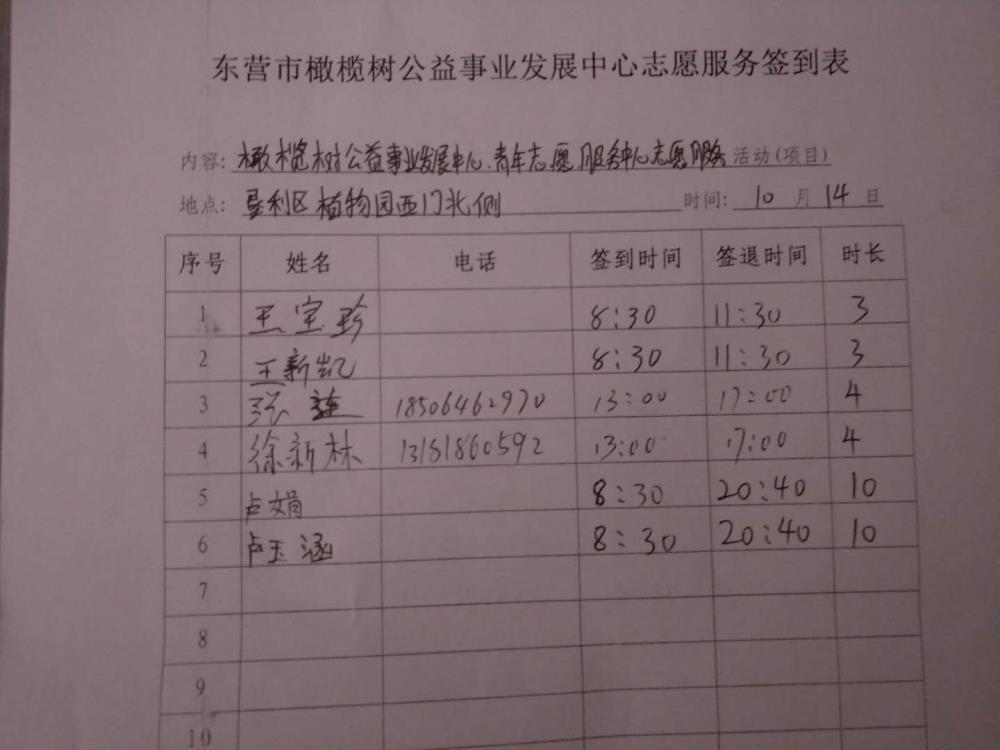 东营市橄榄树公益事业发展中心志愿服务签到表
内容: 橄榄树公益事业发展中心.青年志愿服务中心志愿服务 活动(项目)
地点: 垦利区植物园西门北侧 时间: 10 月 14 日
序号 姓名 电话 签到时间 签退时间 时长
1 王宝珍 8:30 11:30 3
2 王新凯 8:30 11:30 3
3 张 18506462970 13:00 17:00 4
4 徐新林 13181860592 13:00 17:00 4
5 卢娟 8:30 20:40 10
6 卢玉涵 8:30 20:40 10
7
8
9
10